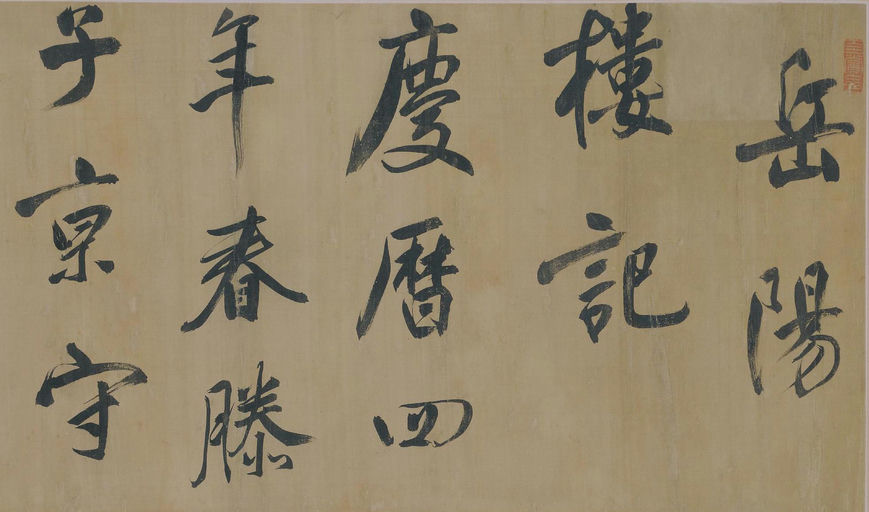 岳陽
樓記
慶曆四
年春滕
子京守